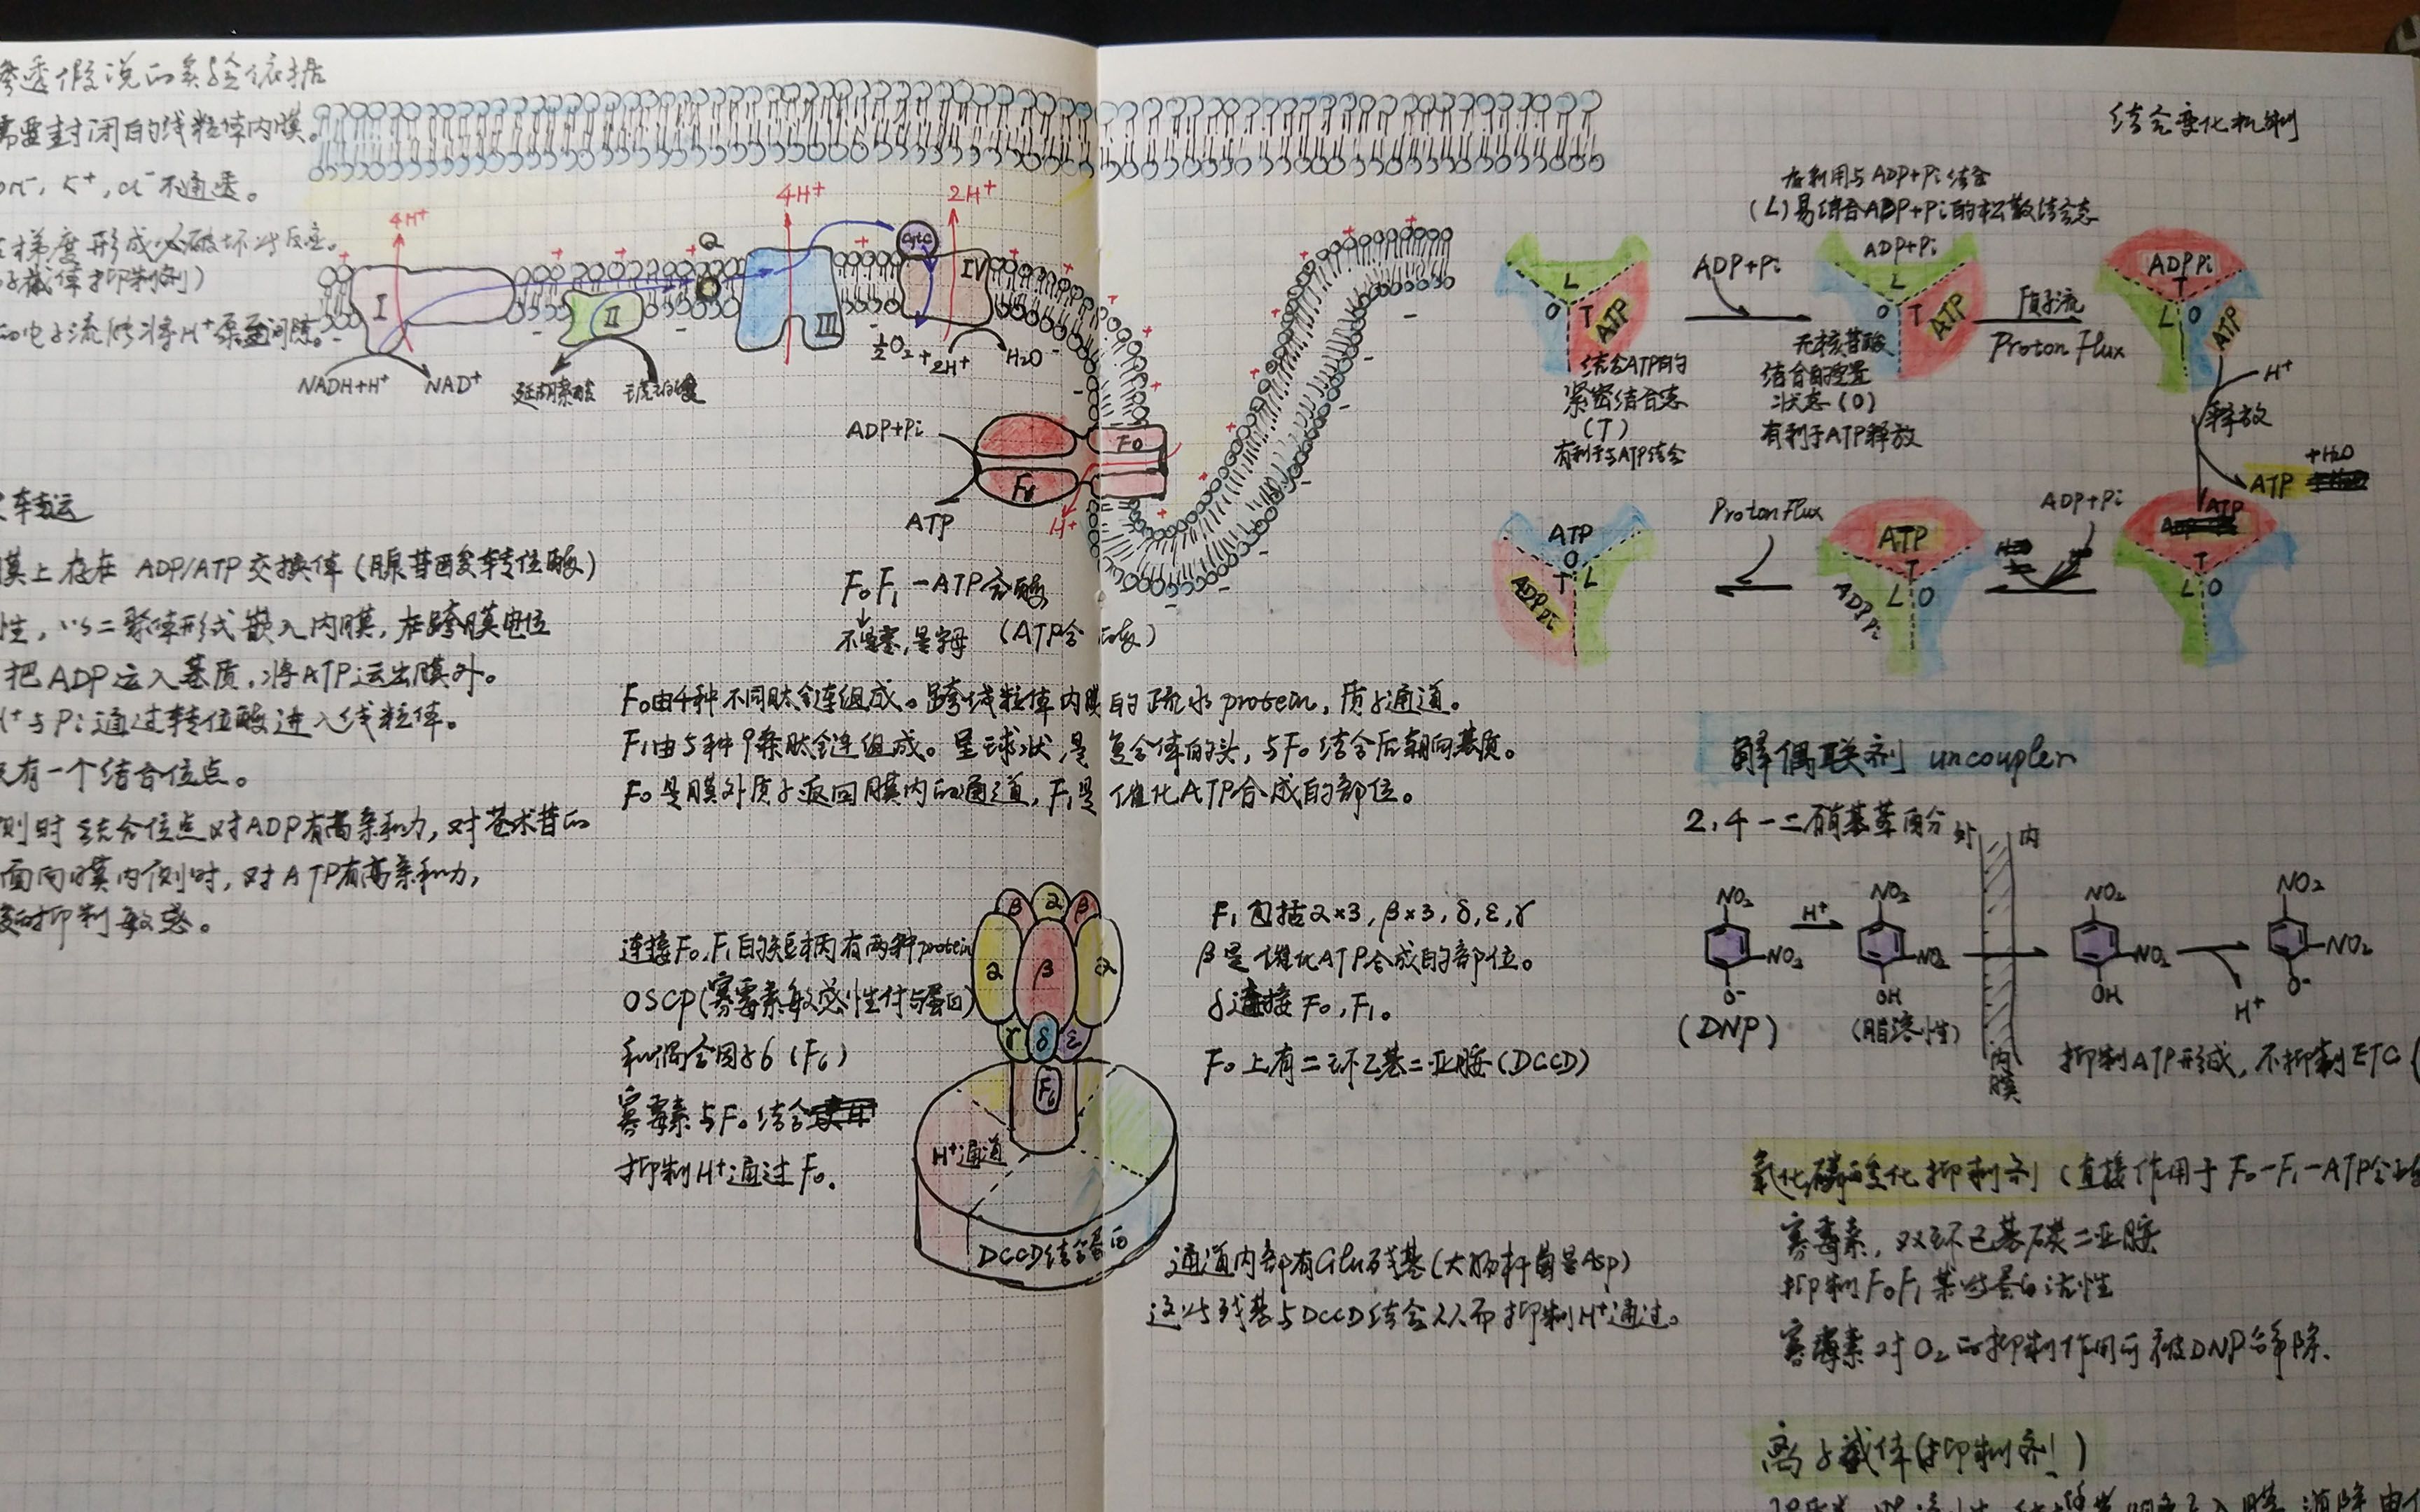 渗透假说的实验依据
需要封闭的线粒体内膜。
OH⁻, K⁺, Cl⁻不通透。
梯度形成必破坏此反应。
子载体抑制剂)
的电子流能将H⁺泵至间隙。
4H⁺
4H⁺
2H⁺
I
II
Q
III
CytC
IV
NADH+H⁺
NAD⁺
延胡索酸
琥珀酸
½O₂+2H⁺
H₂O
ADP+Pi
ATP
F₀
F₁
H⁺
F₀F₁-ATP合酶
不是零,是字母
(ATP合酶)
转运
膜上存在 ADP/ATP交换体(腺苷酸转位酶)
性,以二聚体形式嵌入内膜,在跨膜电位
把ADP运入基质,将ATP运出膜外。
H⁺与Pi通过转位酶进入线粒体。
只有一个结合位点。
侧时 结合位点对ADP有高亲和力,对苍术苷的
面向膜内侧时,对ATP有高亲和力,
的抑制敏感。
F₀由4种不同肽链组成。跨线粒体内膜的疏水protein,质子通道。
F₁由5种9条肽链组成。呈球状,是复合体的头,与F₀结合后朝向基质。
F₀是膜外质子返回膜内的通道,F₁是催化ATP合成的部位。
连接F₀,F₁的短柄有两种protein
OSCP(寡霉素敏感性付与蛋白)
和偶合因子6(F₆)
寡霉素与F₀结合
抑制H⁺通过F₀.
β
α
β
α
β
α
γ
δ
ε
F₆
H⁺通道
DCCD结合蛋白
F₁包括α×3, β×3, δ, ε, γ
β是催化ATP合成的部位。
δ连接F₀,F₁。
F₀上有二环乙基二亚胺(DCCD)
通道内部有Glu残基(大肠杆菌是Asp)
这些残基与DCCD结合从而抑制H⁺通过。
结合变化机制
有利用与ADP+Pi结合
(L)易结合ADP+Pi的松散结合态
L
O
T
ATP
ADP+Pi
ADP+Pi
L
O
T
ATP
质子流
Proton Flux
ADP Pi
T
L
O
ATP
结合ATP的
紧密结合态
(T)
有利于与ATP结合
无核苷酸
结合的空置
状态(O)
有利于ATP释放
H⁺
释放
ATP
+H₂O
ATP
T
L
O
ADP+Pi
ATP
T
L
O
ADP Pi
Proton Flux
ATP
O
T
L
ADP Pi
解偶联剂 uncoupler
2,4-二硝基苯酚
外
内
NO₂
NO₂
O⁻
(DNP)
H⁺
NO₂
NO₂
OH
(脂溶性)
内膜
NO₂
NO₂
OH
H⁺
NO₂
NO₂
O⁻
抑制ATP形成,不抑制ETC(
氧化磷酸化抑制剂(直接作用于F₀-F₁-ATP合
寡霉素,双环己基碳二亚胺
抑制F₀F₁某些蛋白活性
寡霉素对O₂的抑制作用可被DNP解除.
离子载体(抑制剂)